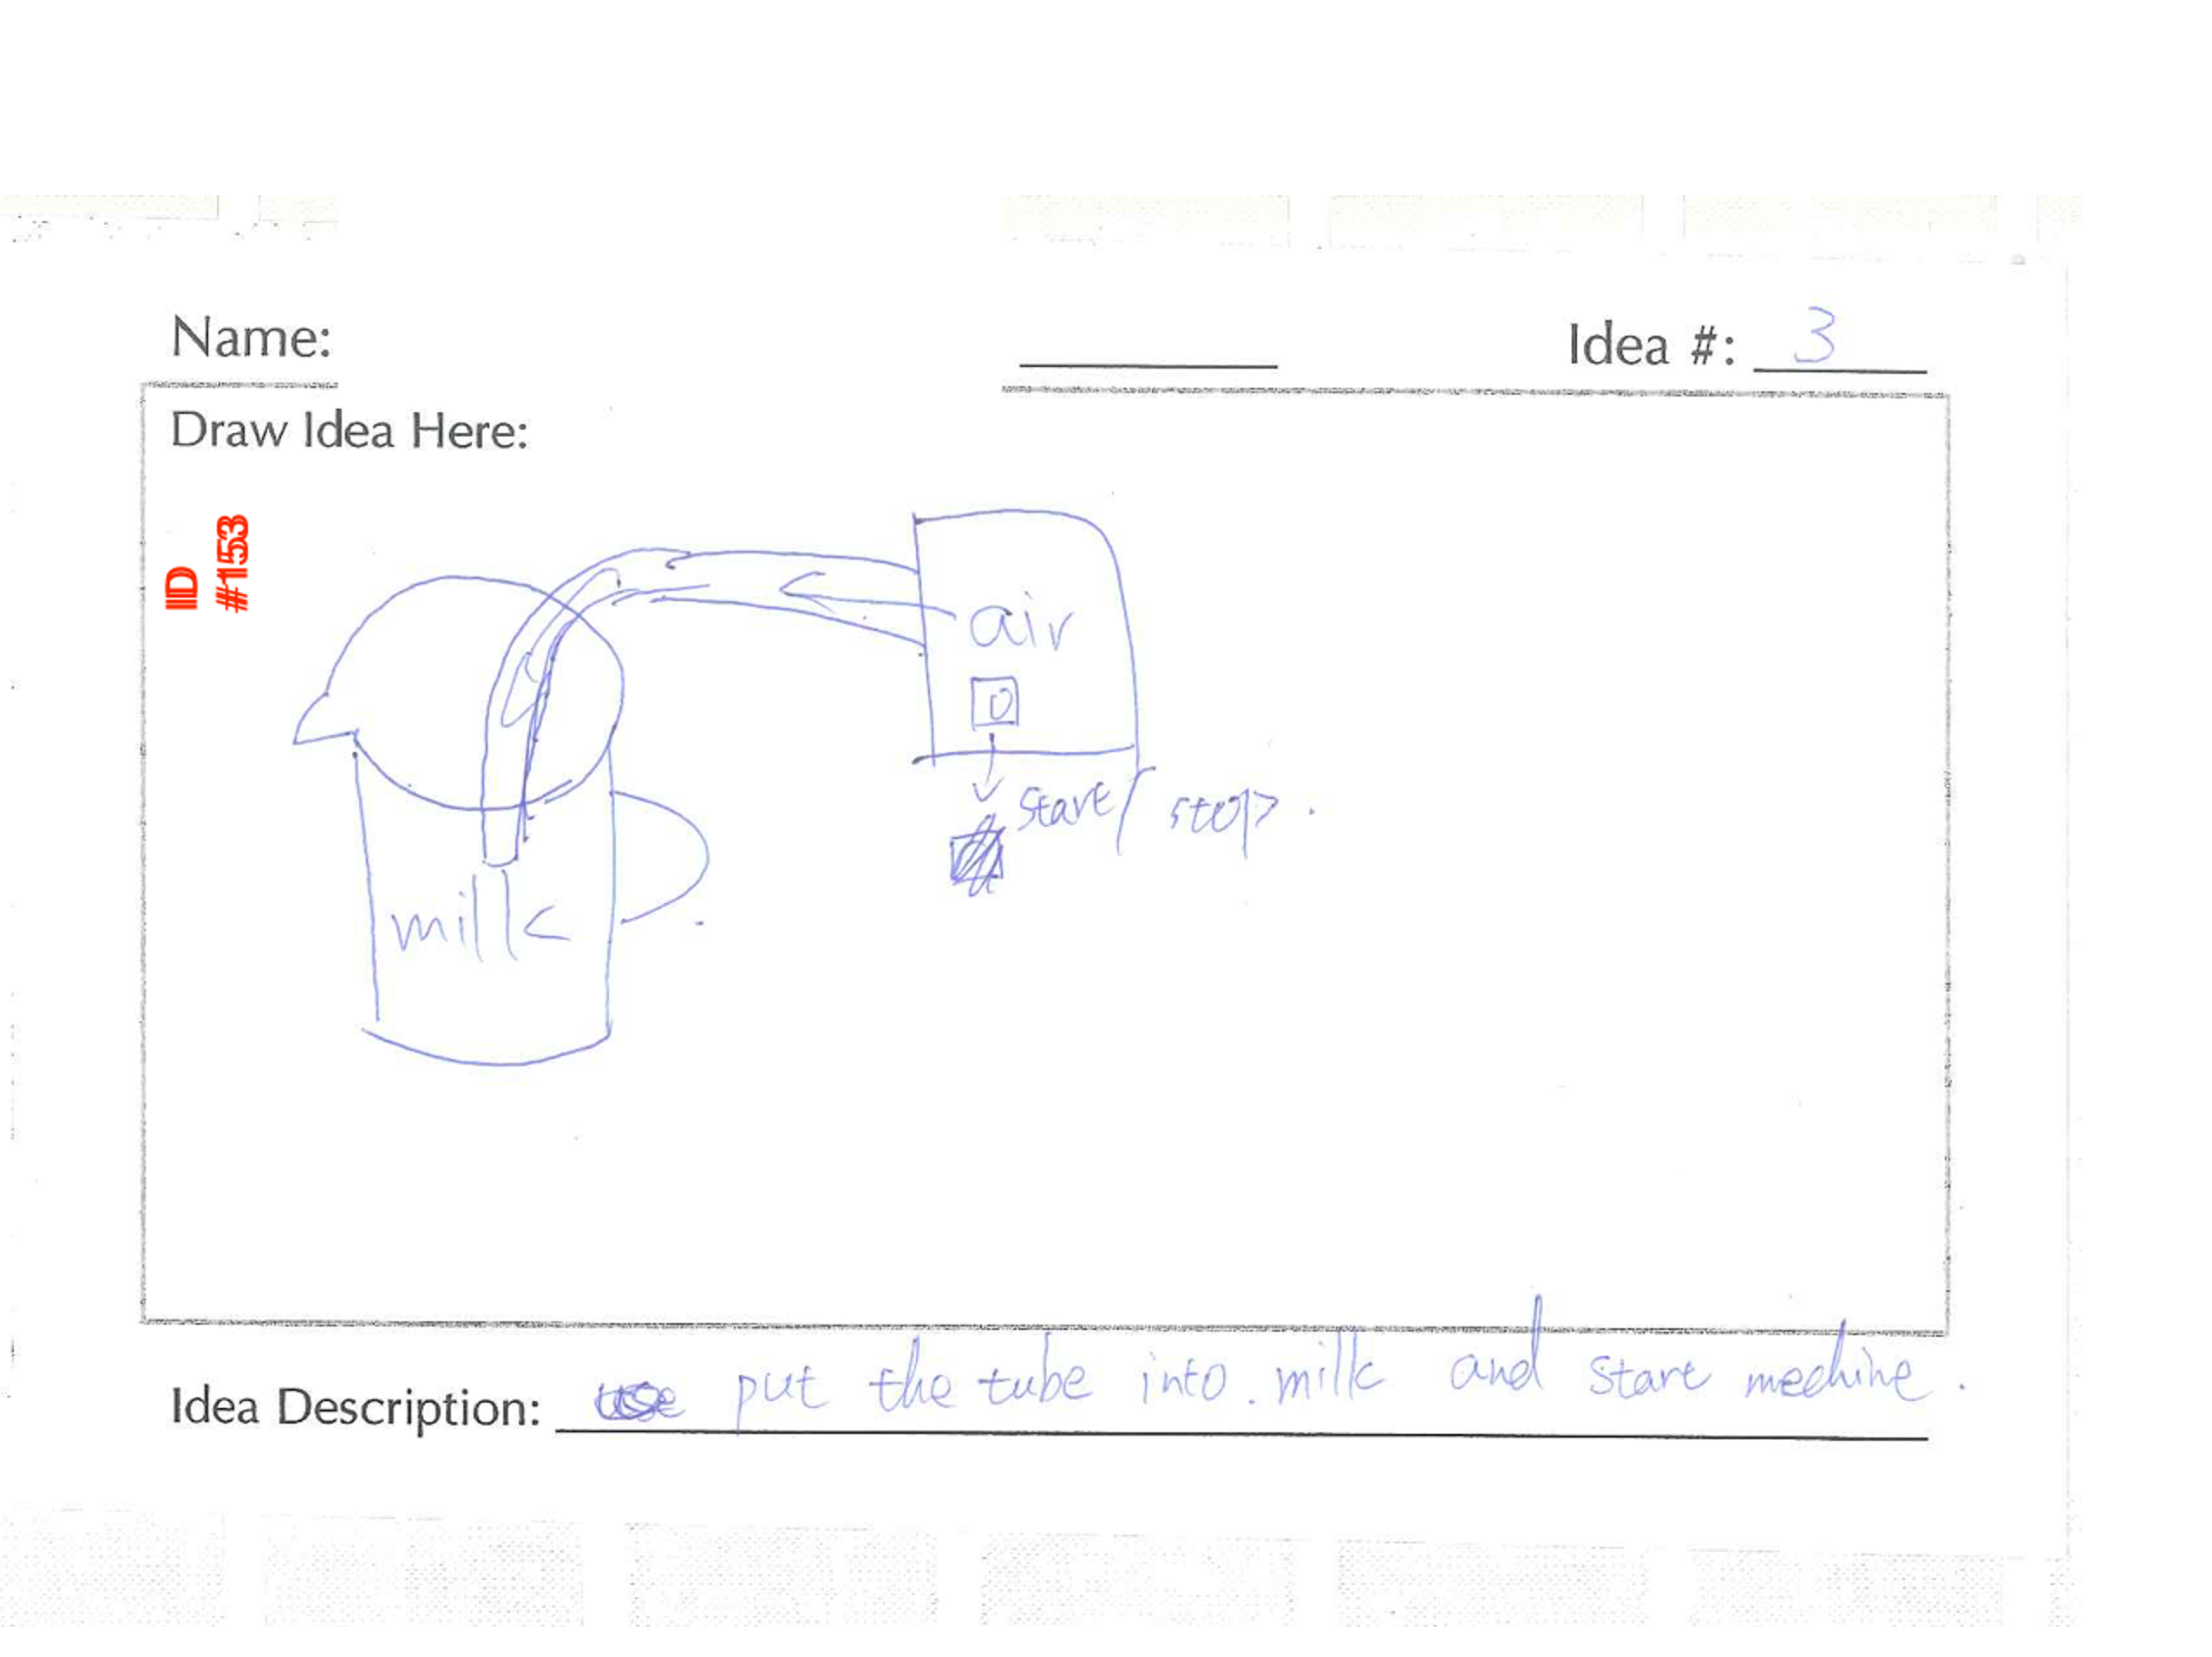 Name:
Idea #: 3
Draw Idea Here:
ID
#153
air
start/ stop.
milk
Idea Description: put the tube into. milk and start mechine.